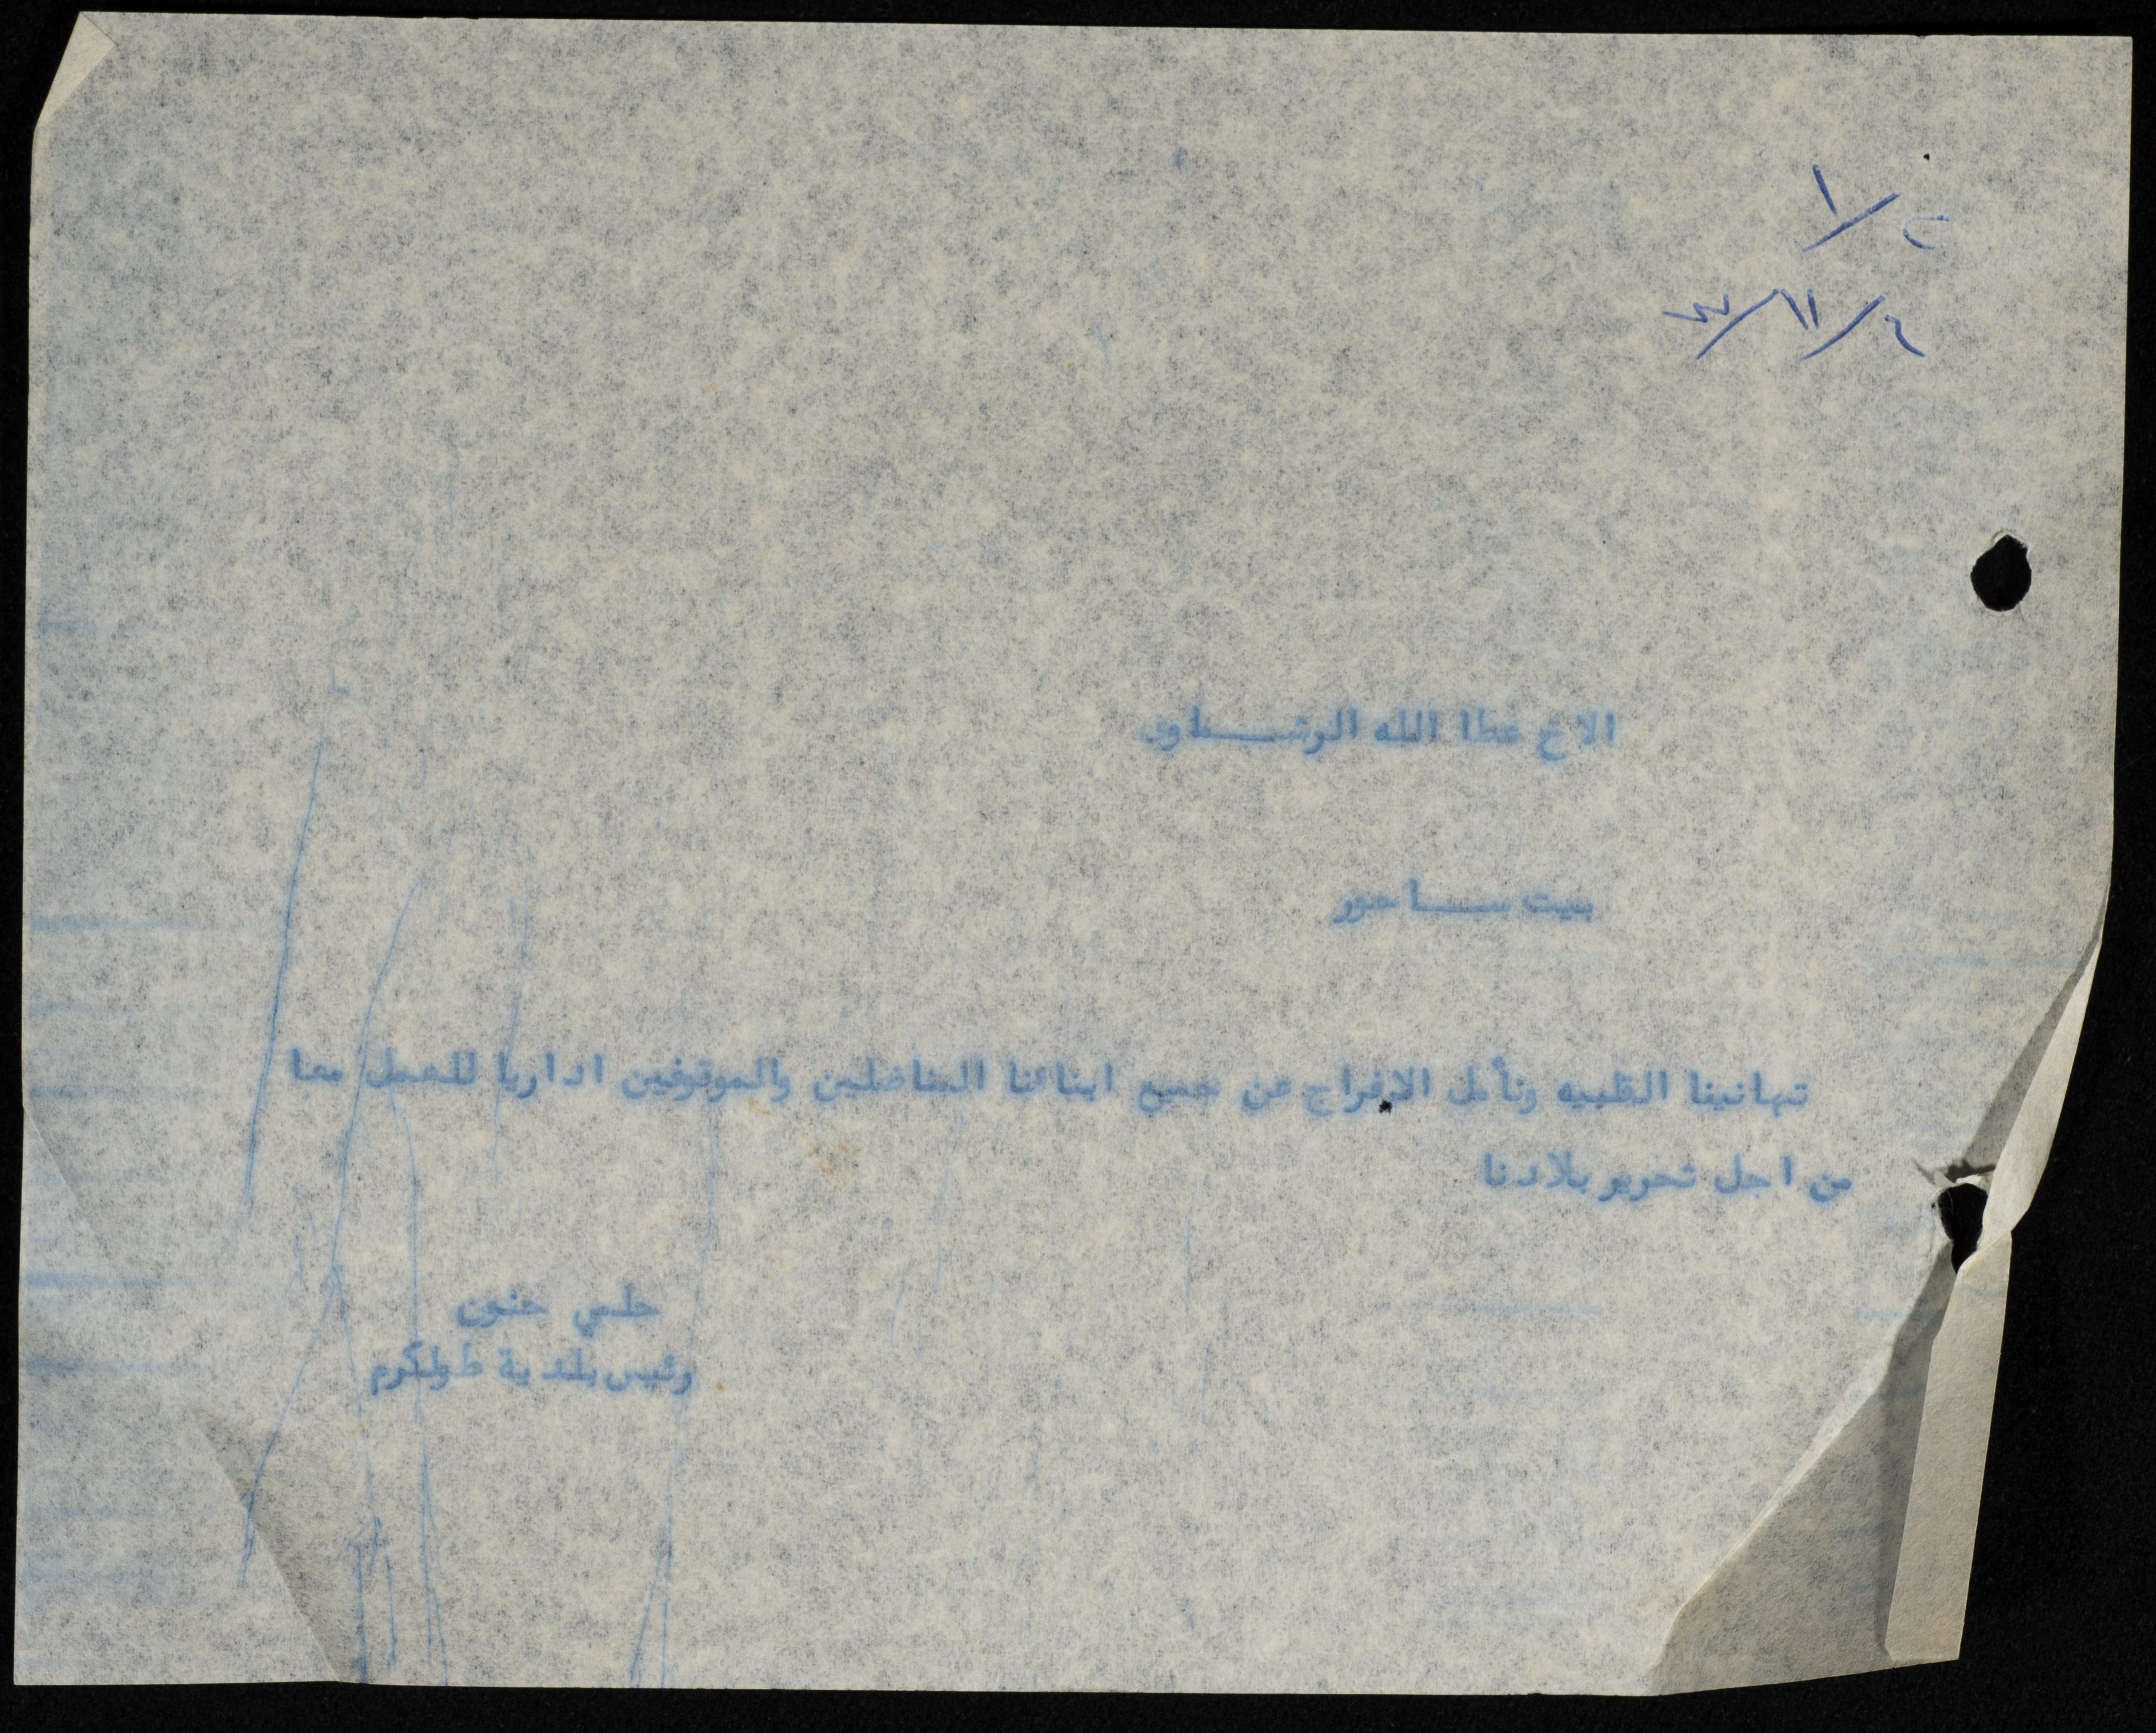 الاخ عطا الله الرشـــماوي
بيت ســـاحور
تهانينا القلبيه ونأمل الافراج عن جميع ابنائنا المناضلين والموقوفين اداريا للعمل معا
من اجل تحرير بلادنا
حلمي حنون
رئيس بلدية طولكرم